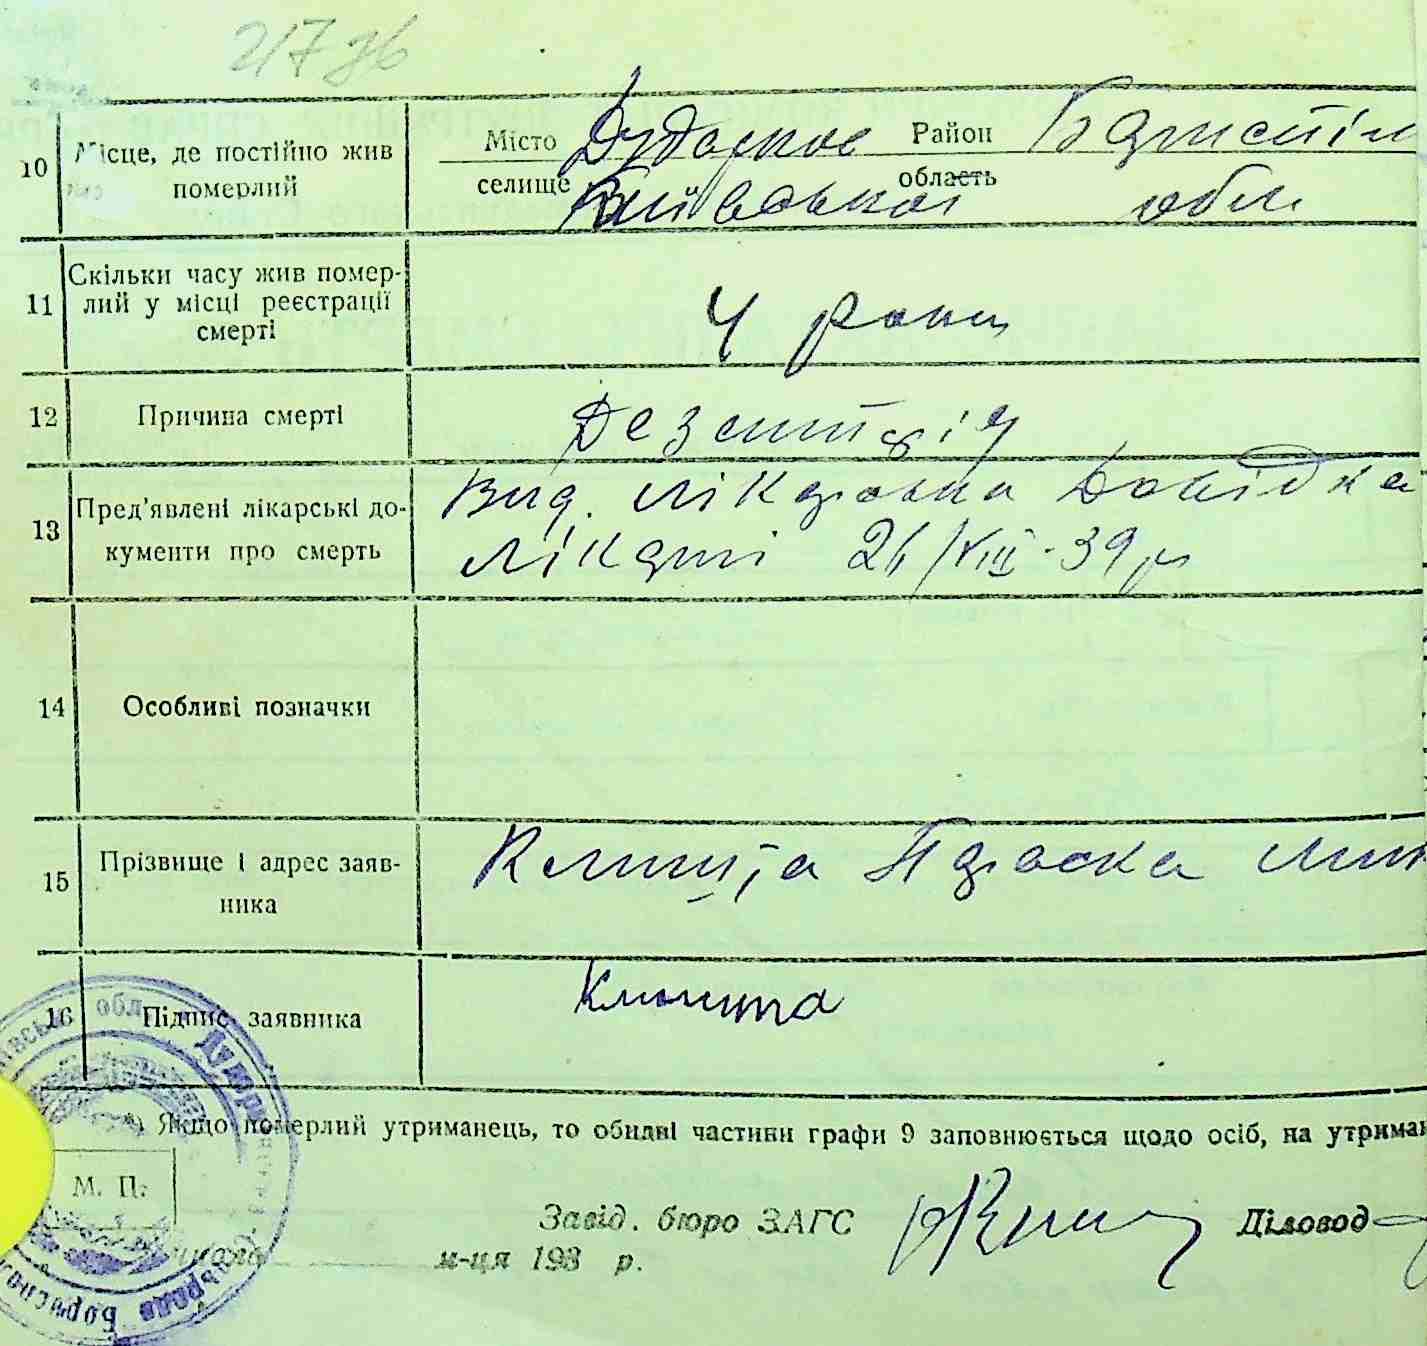 217 зв
10 Місце, де постійно жив померлий
Місто Дударков Район Баришпіл
селище Київської область обл
11 Скільки часу жив помер-
лий у місці реєстрації
смерті
4 роки
12 Причина смерті
Дезинтерія
13 Пред'явлені лікарські до-
кументи про смерть
Вид. лікарська Довідка
лікарні 21/VIII-39 р
14 Особливі позначки
15 Прізвище і адрес заяв-
ника
Параска
16 Підпис заявника
*) Якщо померлий утриманець, то обидві частини графи 9 заповнюється щодо осіб, на утриман
М. П.
Завід. бюро ЗАГС Діловод
числа м-ця 193 р.